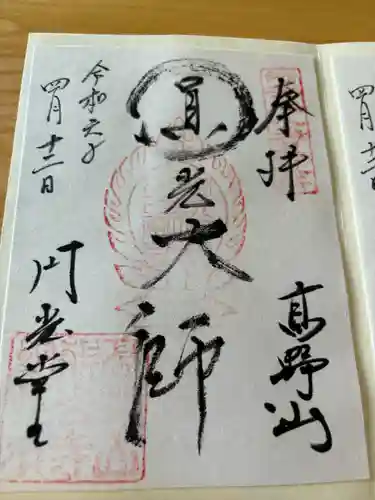 奉拝
高野山
圓光大師
令和六年
四月十三日
円光堂
四月